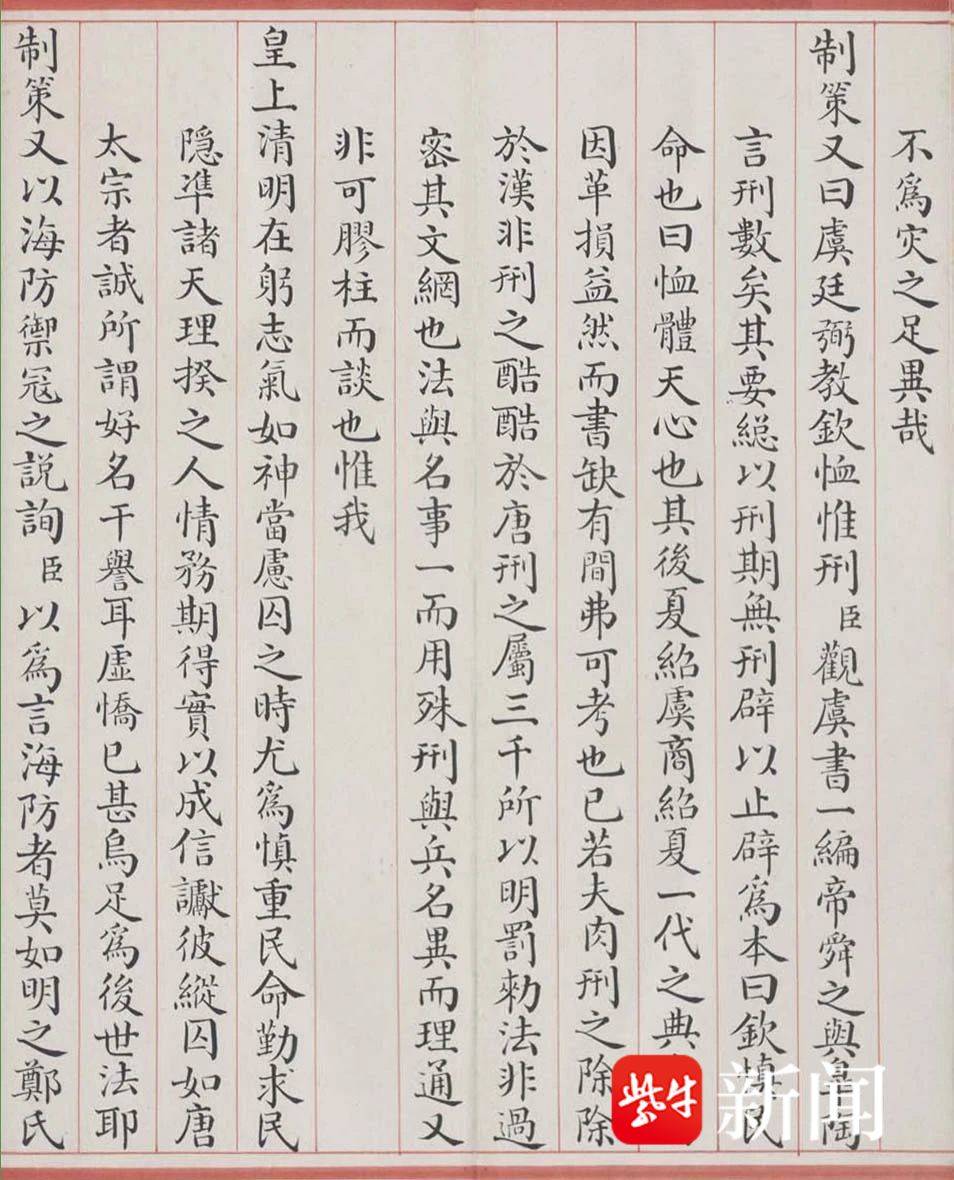 不爲灾之足異哉
制策又曰虞廷弼教欽恤惟刑臣觀虞書一編帝舜之與皋陶
言刑數矣其要緫以刑期無刑辟以止辟爲本曰欽慎民
命也曰恤體天心也其後夏紹虞商紹夏一代之典
因革損益然而書缺有間弗可考也已若夫肉刑之除除
於漢非刑之酷酷於唐刑之屬三千所以明罰勑法非過
密其文網也法與名事一而用殊刑與兵名異而理通又
非可膠柱而談也惟我
皇上清明在躬志氣如神當慮囚之時尤爲慎重民命勤求民
隱準諸天理揆之人情務期得實以成信讞彼縱囚如唐
太宗者誠所謂好名干譽耳虛憍已甚烏足爲後世法耶
制策又以海防禦冦之説詢臣以爲言海防者莫如明之鄭氏
紫牛新闻